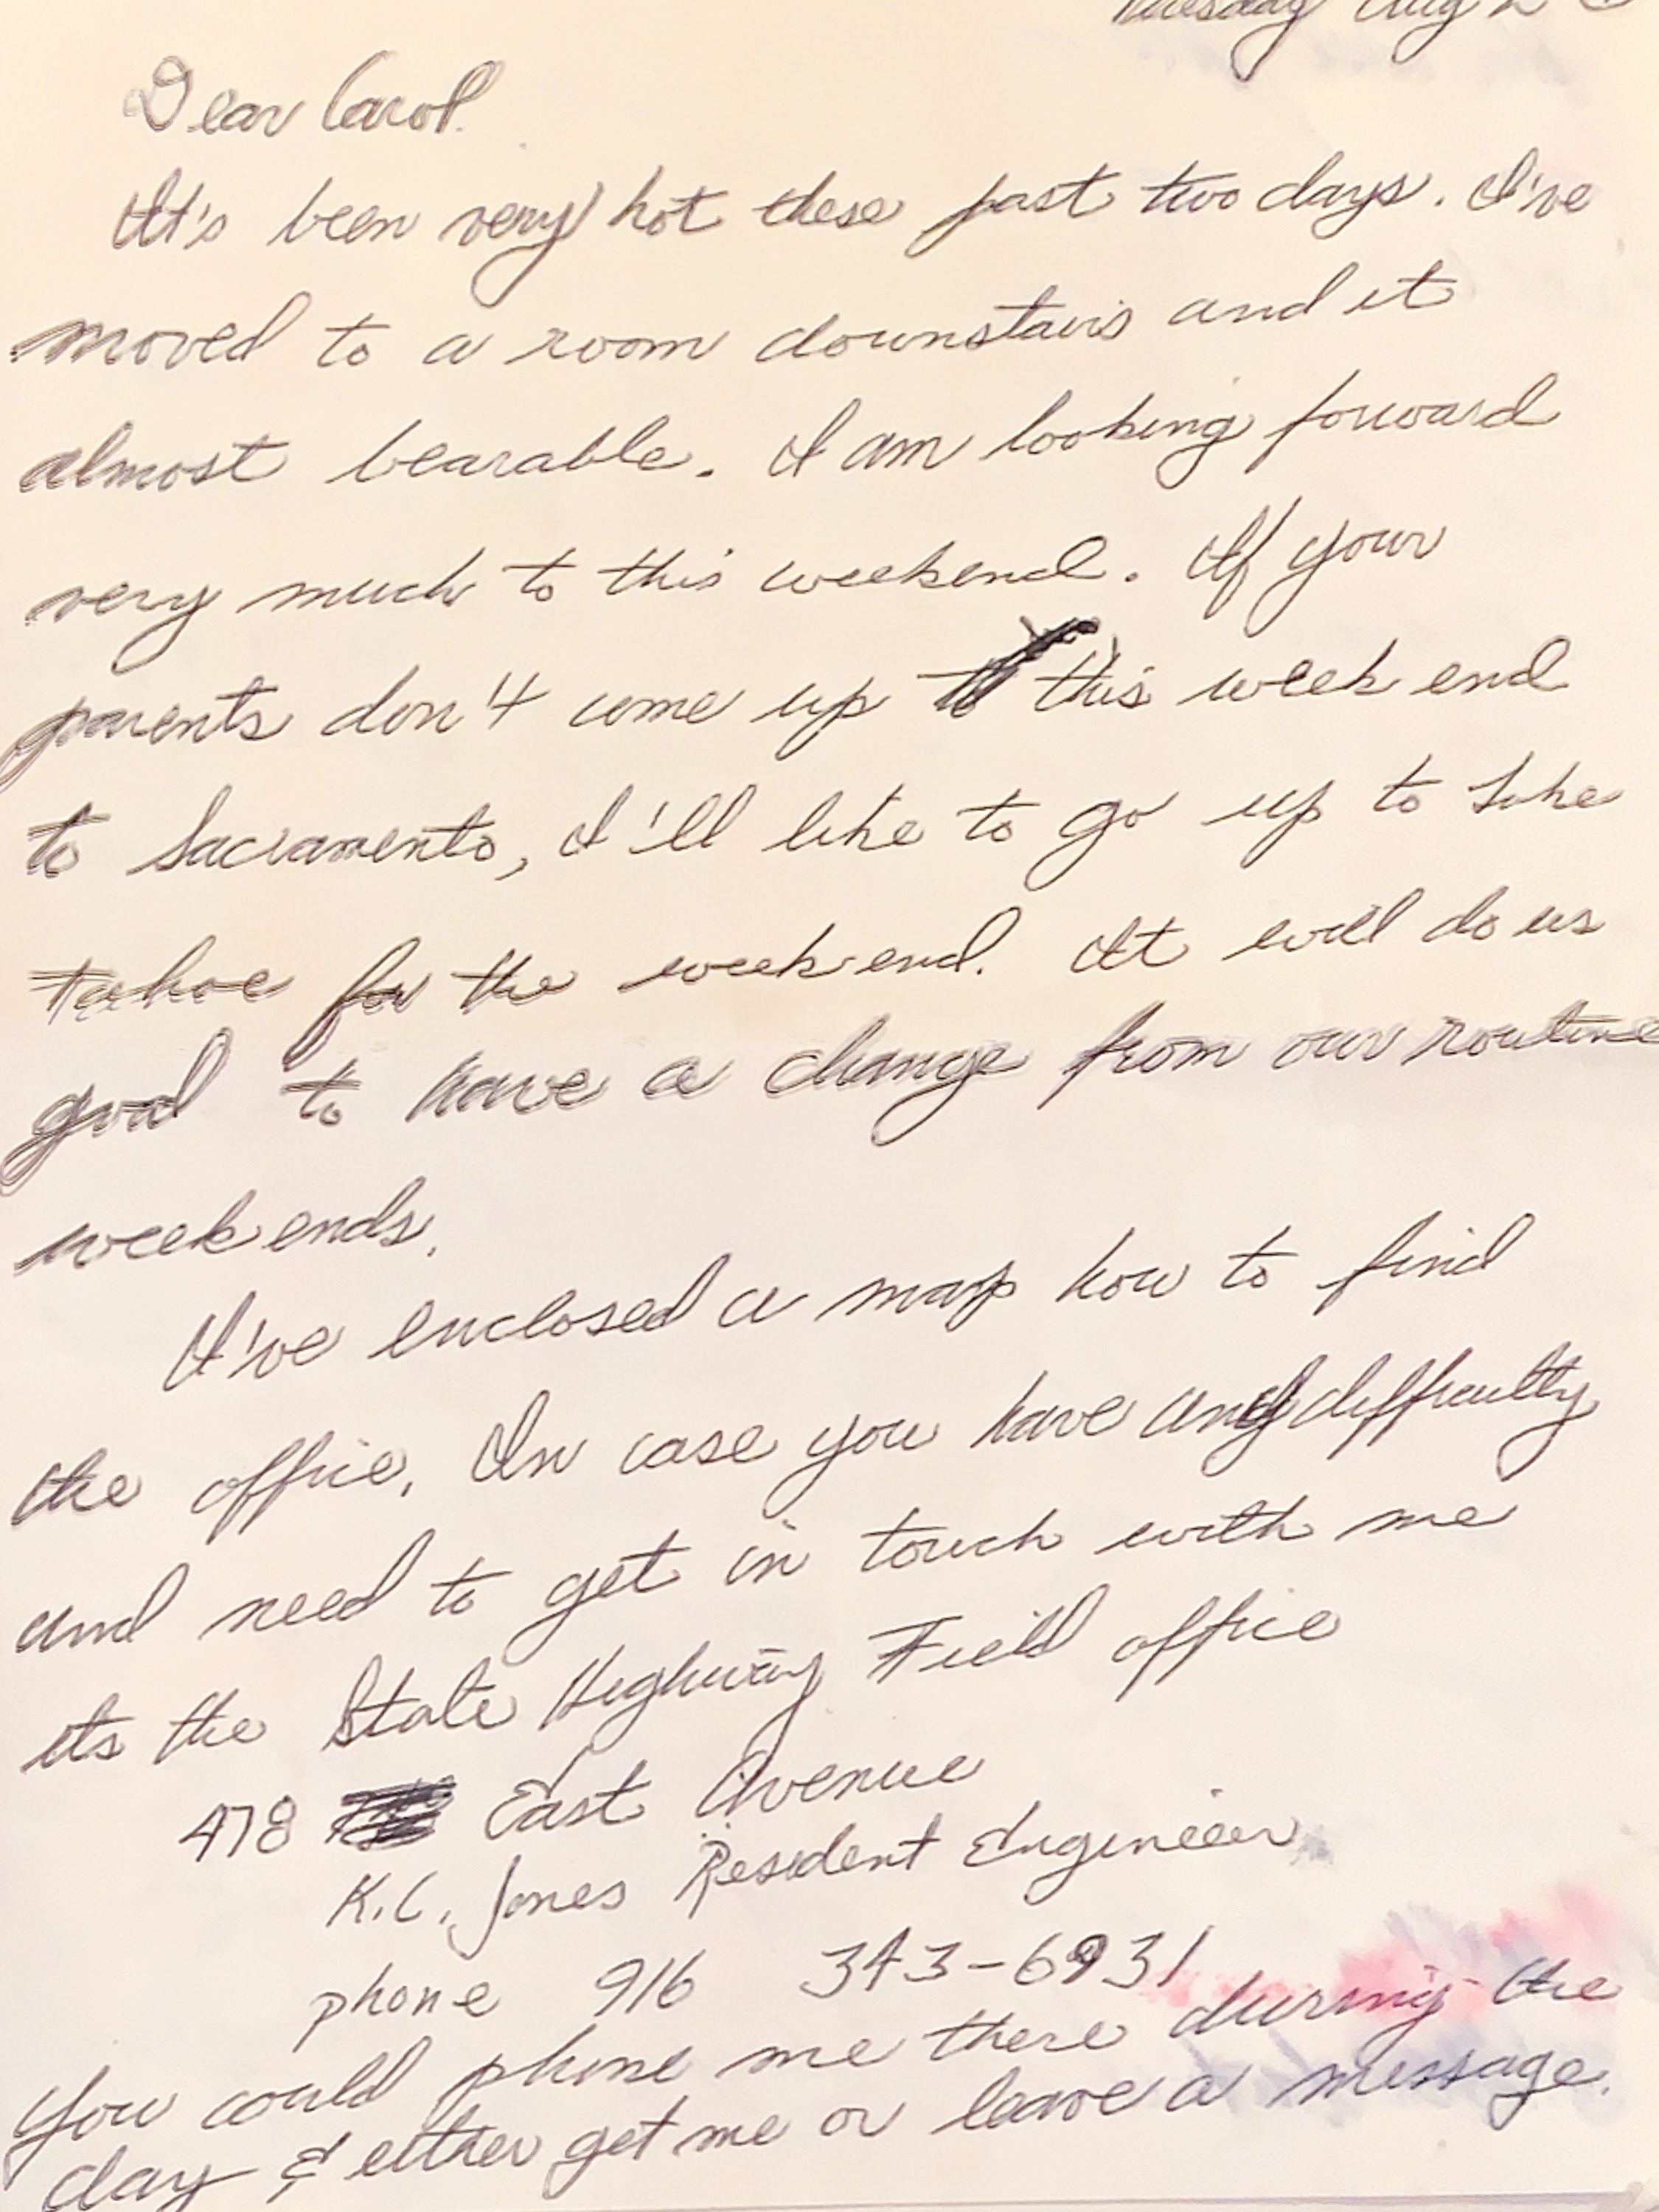 Tuesday Aug 2
Dear Carol.
It's been very hot these past two days. I've
moved to a room downstairs and it
almost bearable. I am looking forward
very much to this weekend. If your
parents don't come up this week end
to Sacramento, I'll like to go up to Lake
Tahoe for the week end. It will do us
good to have a change from our routine
week ends.
I've enclosed a map how to find
the office. In case you have any difficulty
and need to get in touch with me
its the State Highway Field office
478 East Avenue
K.C. Jones Resident Engineer
phone 916 343-6931
You could phone me there during the
day & either get me or leave a message.